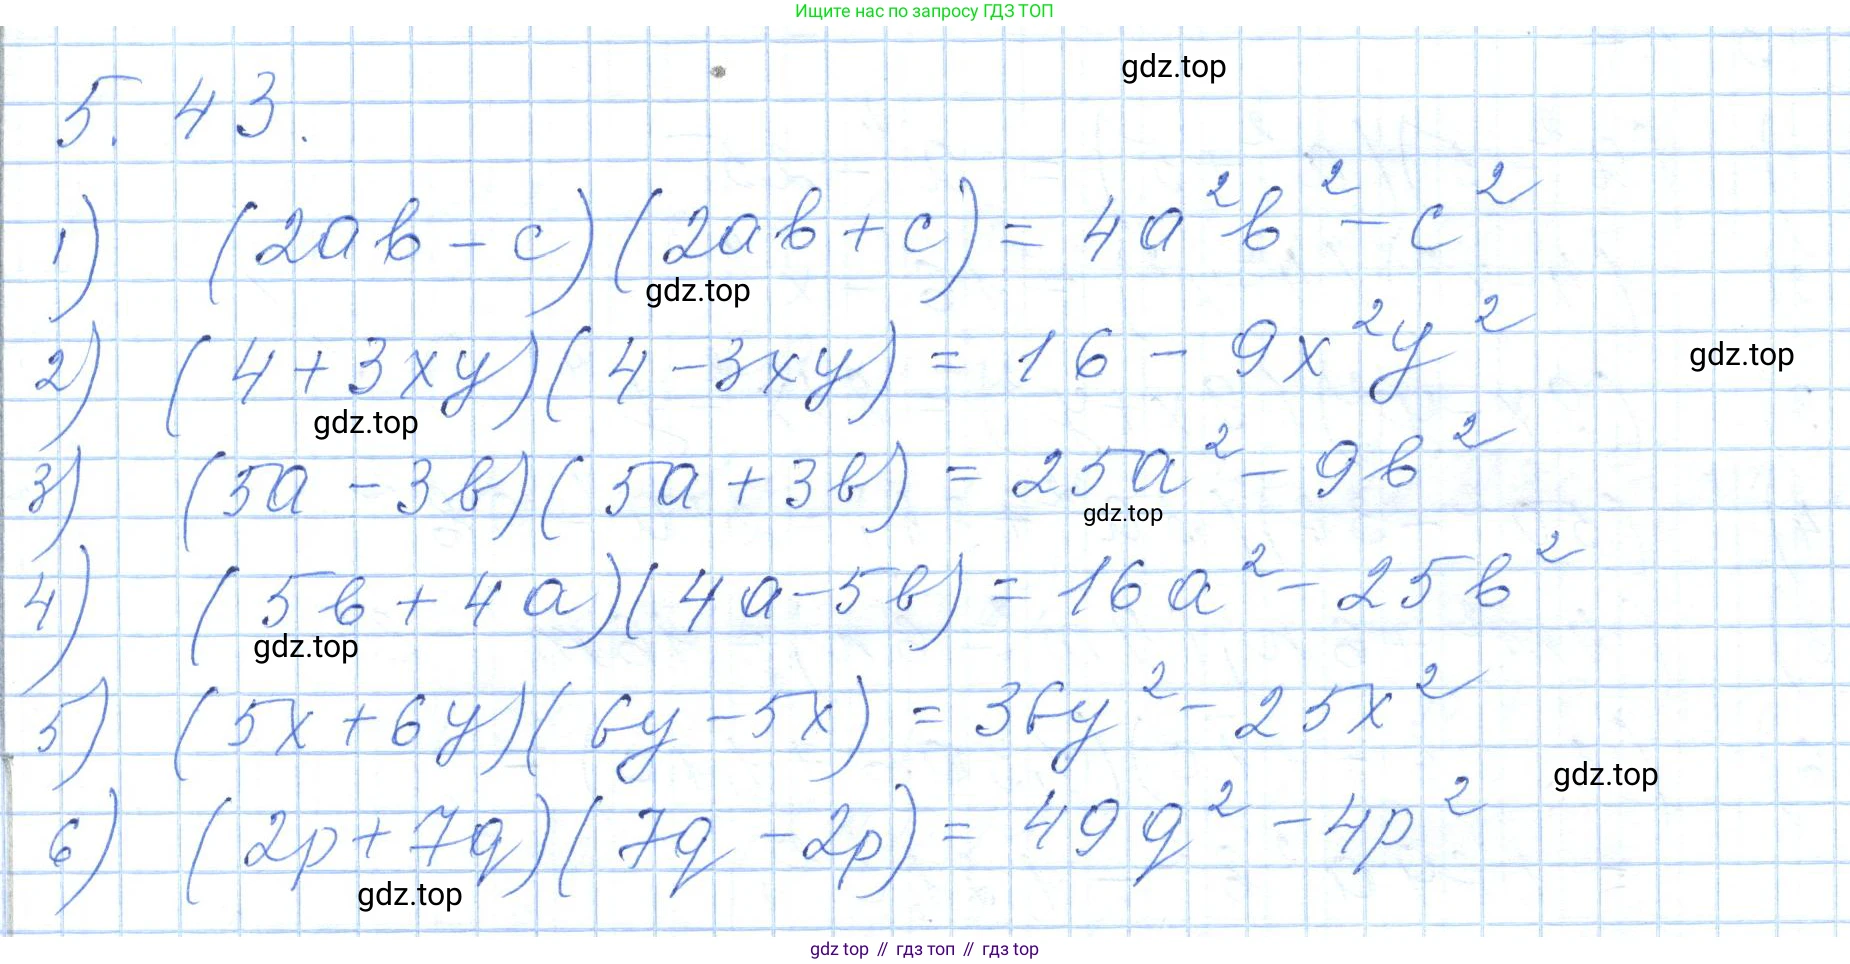 Ищите нас по запросу ГДЗ ТОП
gdz.top
5.43.
1) (2ab - c)(2ab + c) = 4a²b² - c²
gdz.top
2) (4 + 3xy)(4 - 3xy) = 16 - 9x²y²
gdz.top
gdz.top
3) (5a - 3b)(5a + 3b) = 25a² - 9b²
gdz.top
4) (5b + 4a)(4a - 5b) = 16a² - 25b²
gdz.top
5) (5x + 6y)(6y - 5x) = 36y² - 25x²
gdz.top
6) (2p + 7q)(7q - 2p) = 49q² - 4p²
gdz.top
gdz top // гдз топ // гдз top